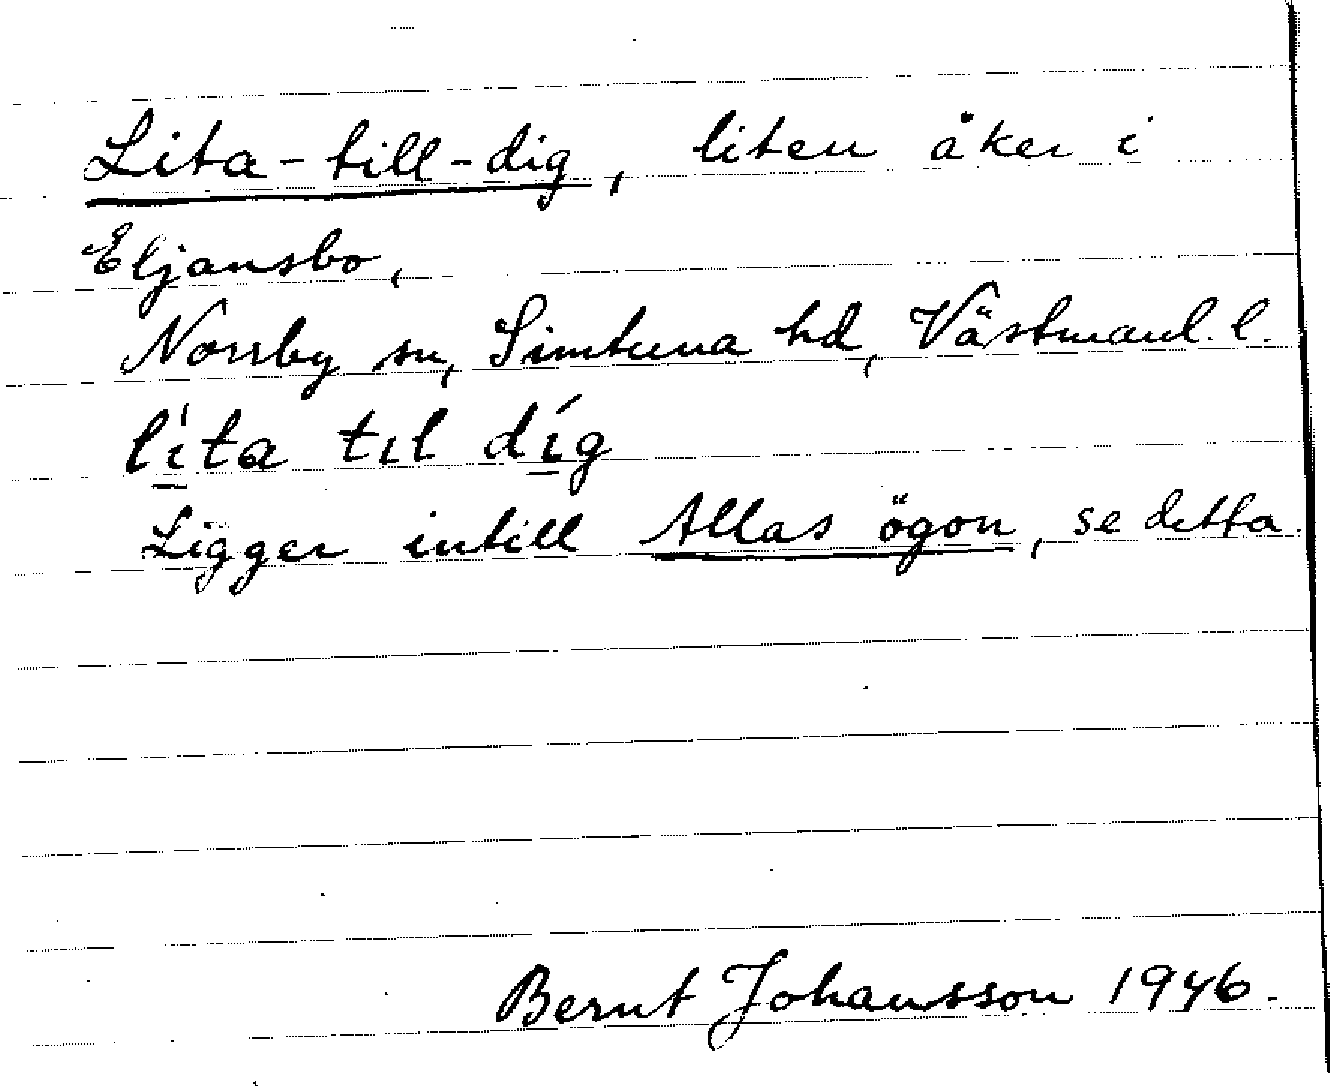 Lita-till-dig, liten åker i
Eljansbo,
Norrby sn, Simtuna hd, Västmanl. l.
lí̲ta tıl dı̲́g
Ligger intill Allas ögon, se detta.
Bernt Johansson 1946.